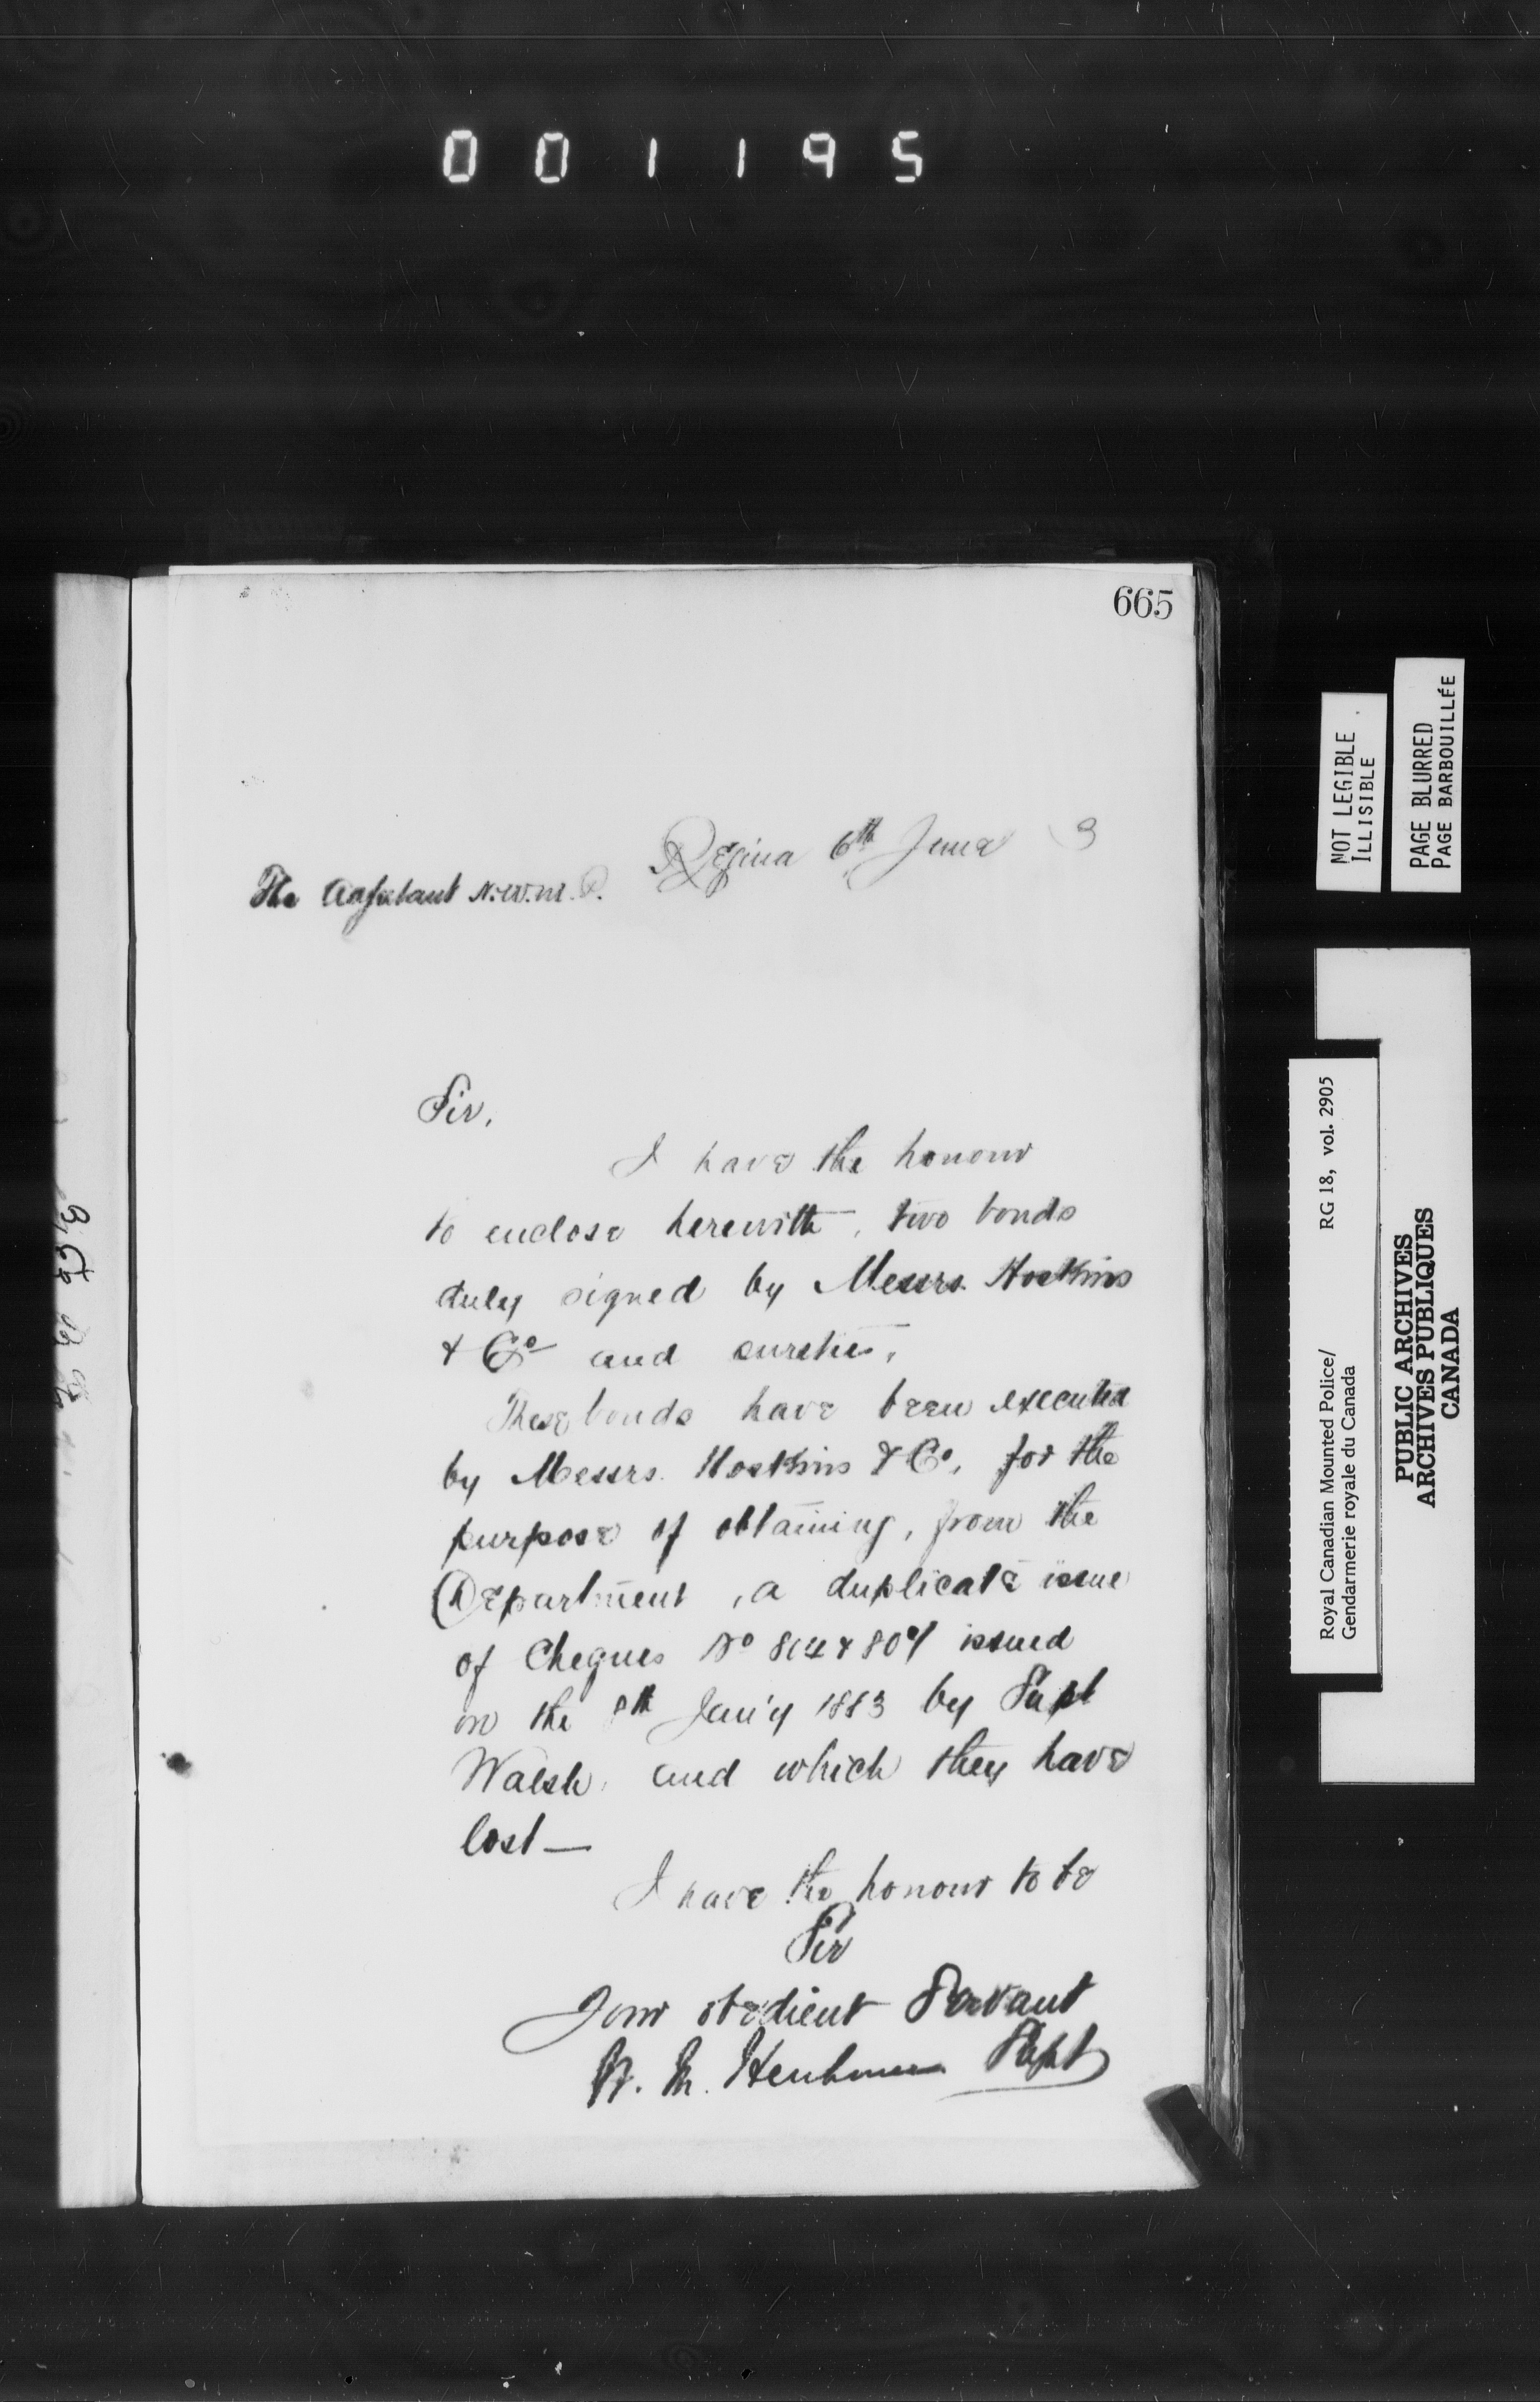 001195
665
Regina 6th June 3
The Adjutant N.W.M.P.
Sir,
I have the honour
to enclose herewith, two bonds
duly signed by Messrs. Hoskins
& Co and sureties,
These bonds have been executed
by Messrs. Hoskins & Co, for the
purpose of obtaining, from the
Department, a duplicate issue
of Cheques No issued
on the 8th Jan'y 1883 by Supt
Walsh, and which they have
lost—
I have the honour to be
Sir
Your obedient Servant
Supt
NOT LEGIBLE
ILLISIBLE
PAGE BLURRED
PAGE BARBOUILLÉE
Royal Canadian Mounted Police/ RG 18, vol. 2905
Gendarmerie royale du Canada
PUBLIC ARCHIVES
ARCHIVES PUBLIQUES
CANADA